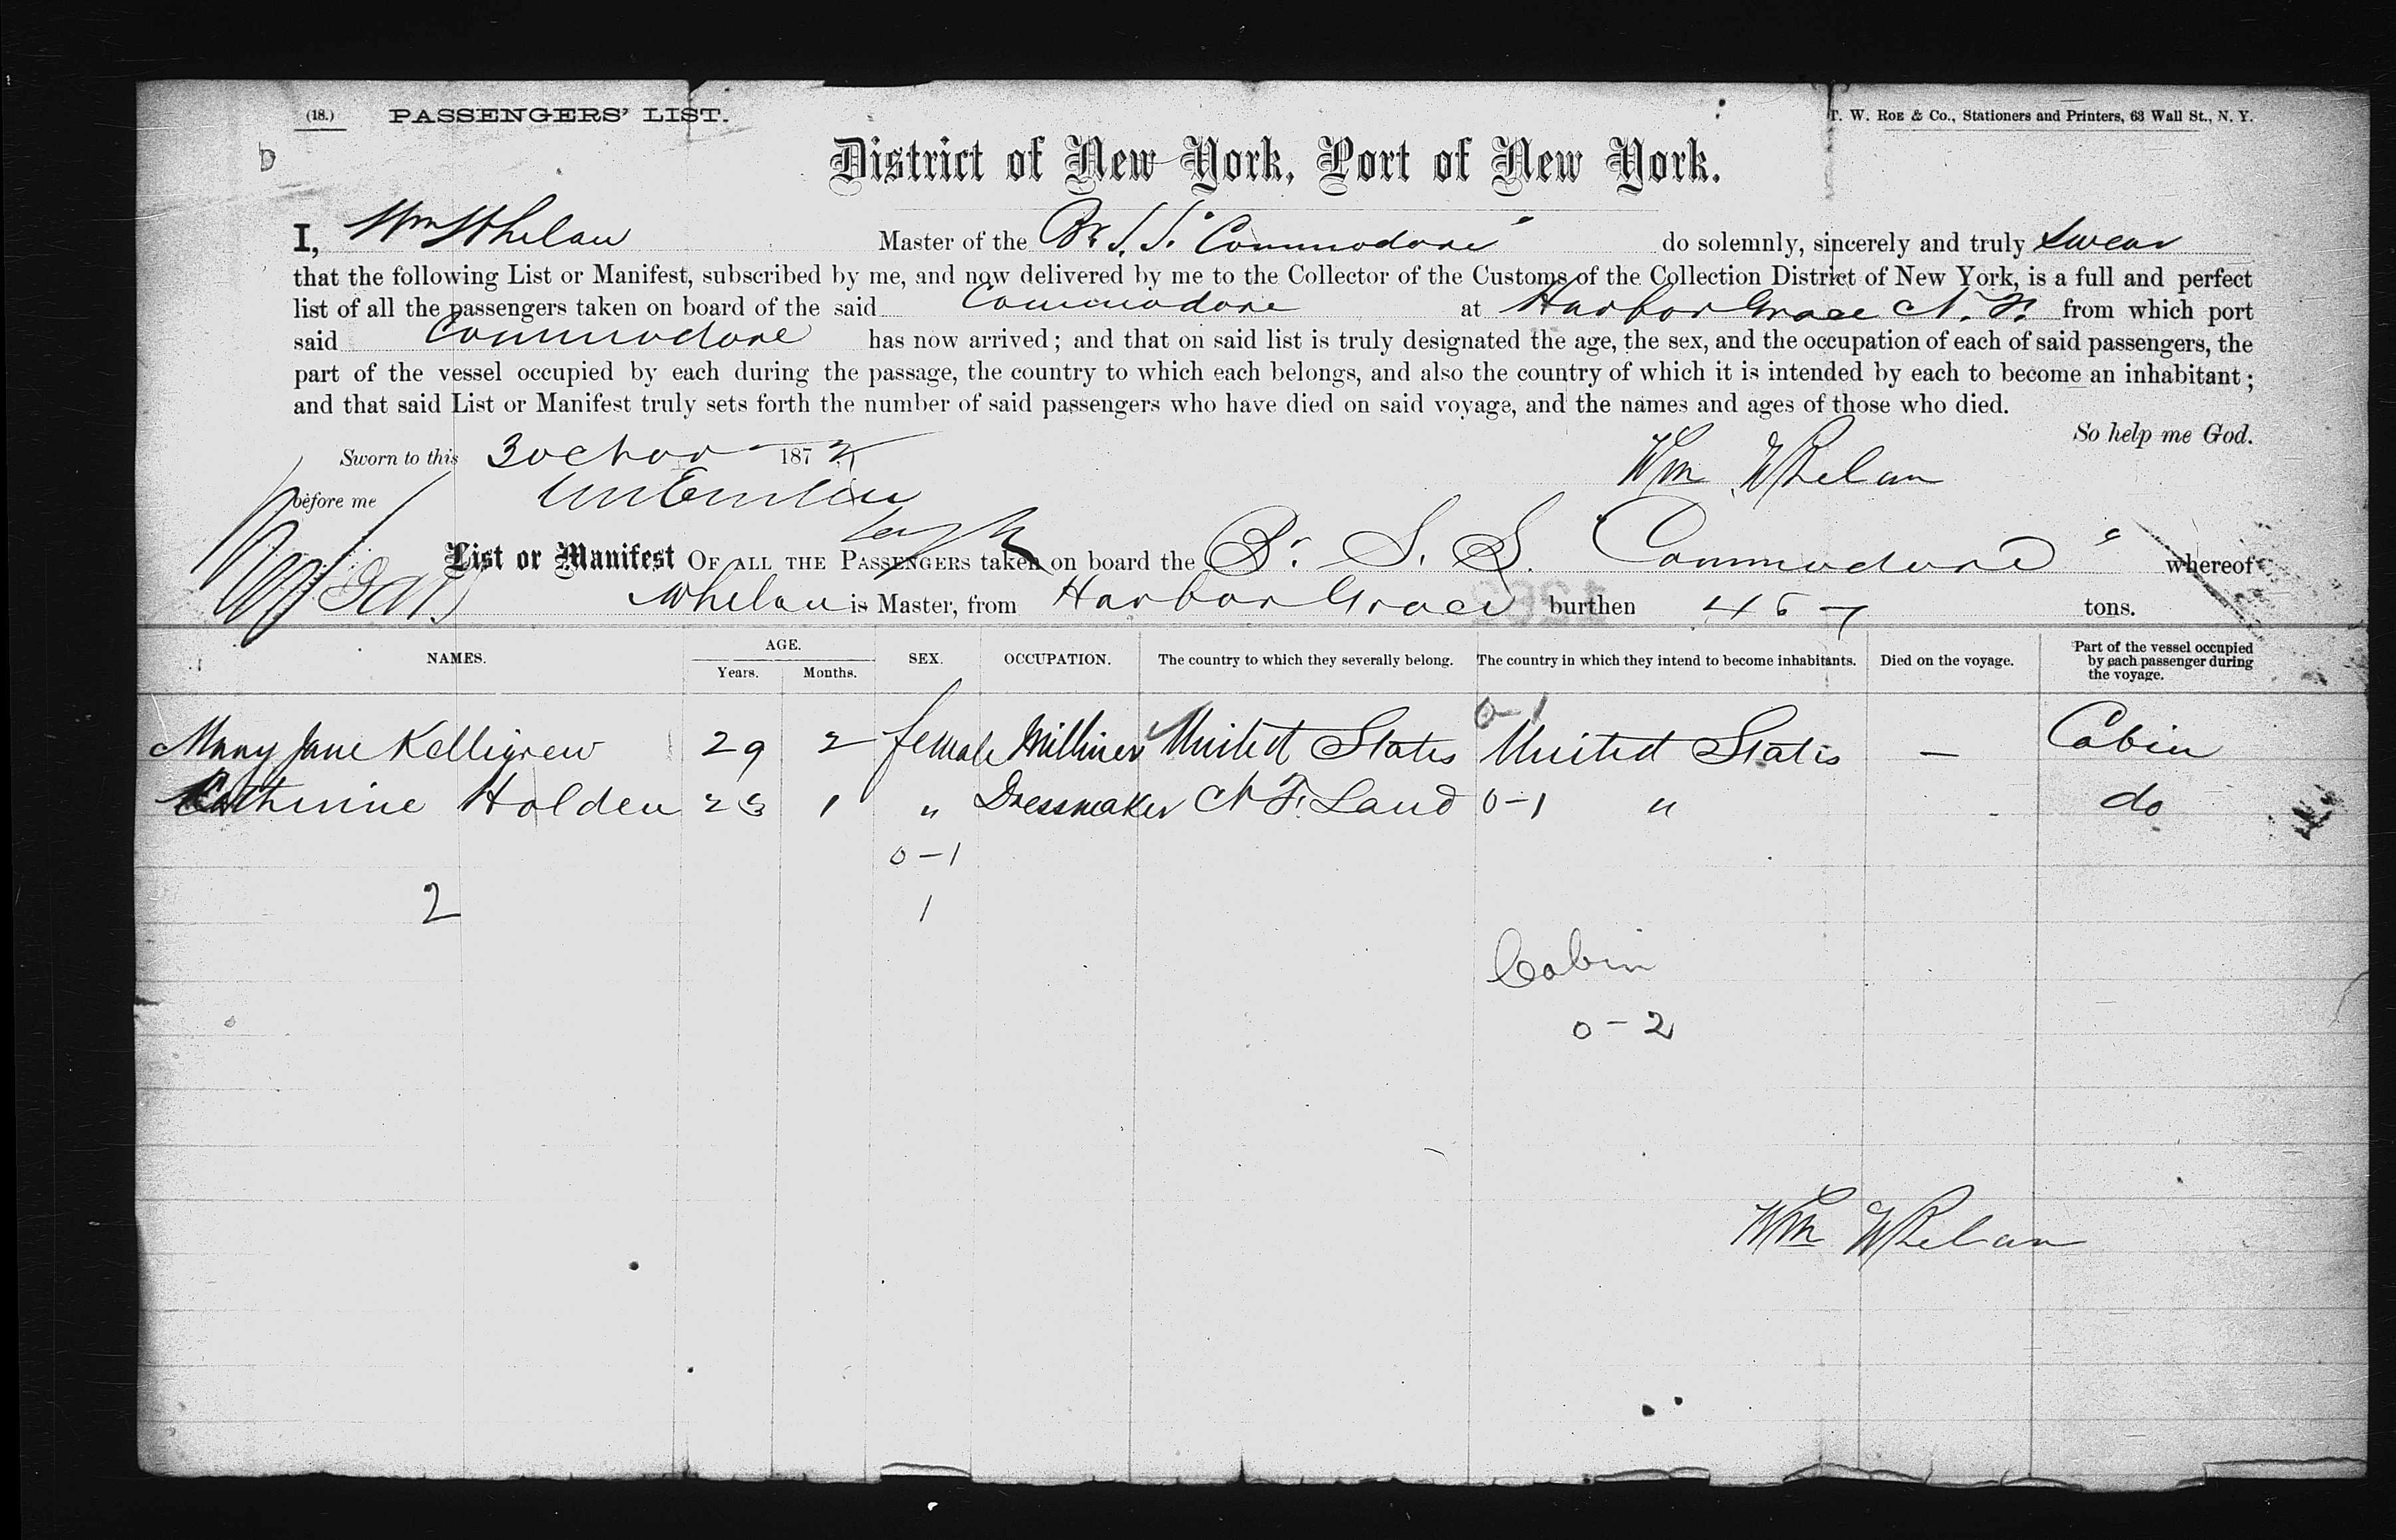 (18.) PASSENGERS' LIST. T. W. ROE & Co., Stationers and Printers, 63 Wall St., N. Y.
D
District of New York, Port of New York.
I, Wm Whelan Master of the Br. S. S. "Commodore" do solemnly, sincerely and truly Swear
that the following List or Manifest, subscribed by me, and now delivered by me to the Collector of the Customs of the Collection District of New York, is a full and perfect
list of all the passengers taken on board of the said Commodore at Harbor Grace N. F. from which port
said Commodore has now arrived; and that on said list is truly designated the age, the sex, and the occupation of each of said passengers, the
part of the vessel occupied by each during the passage, the country to which each belongs, and also the country of which it is intended by each to become an inhabitant;
and that said List or Manifest truly sets forth the number of said passengers who have died on said voyage, and the names and ages of those who died.
So help me God.
Sworn to this 30 187 Wm Whelan
before me
List or Manifest OF ALL THE PASSENGERS taken on board the Br. S. S. "Commodore" whereof
Whelan is Master, from Harbor Grace burthen tons.
NAMES. AGE. Years. Months. SEX. OCCUPATION. The country to which they severally belong. The country in which they intend to become inhabitants. Died on the voyage. Part of the vessel occupied by each passenger during the voyage.
0-1
Mary Jane Kelligrew 29 2 female Milliner United States United States — Cabin
Catherine Holden 1 " Dressmaker N F. Land 0-1 " - do
0-1
2 1
Cabin
0-2
Wm Whelan